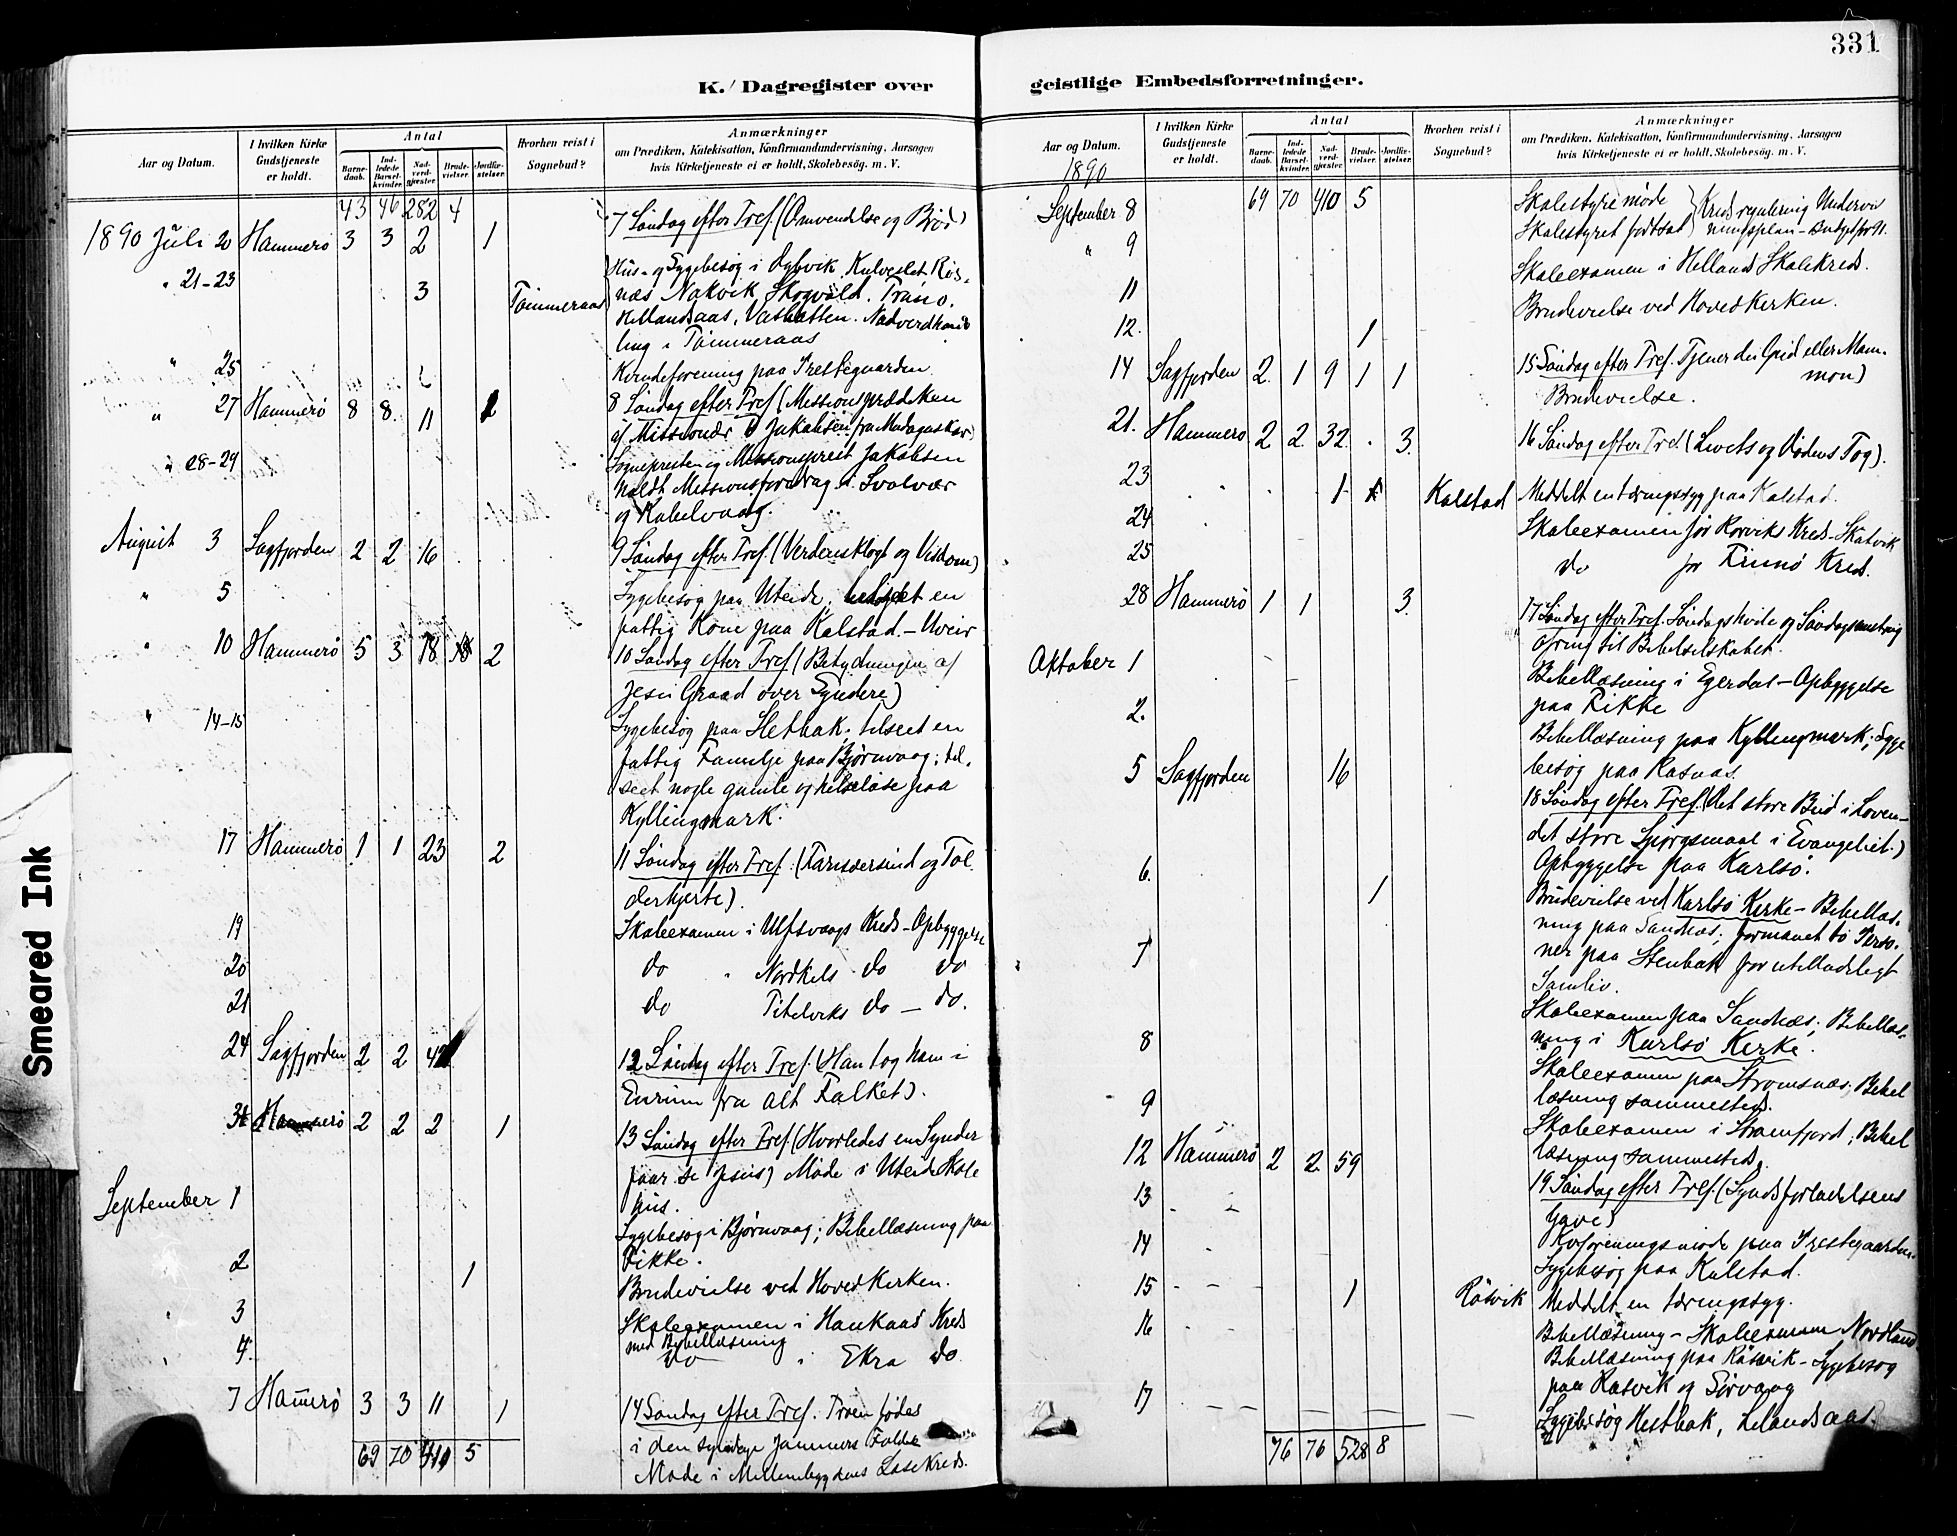 331
K. Dagregister over
Aar og Datum.
I hvilken Kirke Gudstjeneste er holdt.
Antal
Barnedaab.
Indledede Barselkvinder.
Nadverdgjæster.
Brudevielser.
Jordfæstelser.
Hvorhen reist i Sognebud?
Anmærkninger
om Prædiken, Katekisation, Konfirmandundervisning, Aarsagen
hvis Kirketjeneste ei er holdt, Skolebesøg. m. V.
43 46 282 4
1890 Juli 20 Hammerö 3 3 2 1 7 Søndag efter Tref. (Omvendelse og Brød)
" 21-23 3 Tømmeraas Hus- og Sygebesøg i
næs Nakvik, Skogvold. Tranø.
Hellandsaas,
ling i Tømmeraas
" 25 Kvindeforening paa Prestegaarden
" 27 Hammerö 8 8 11 2 8 Søndag efter Tref. (Missionsprædiken
af Missionær Jakobsen fra Madagaskar)
" 28-29 Sognepresten og Missionsprest Jakobsen
holdt Missionsforedrag i Svolvær
og Kabelvaag.
August 3 Sagfjorden 2 2 16 9 Søndag efter Tref. (Verdensklogt og Visdom)
" 5 Sygebesøg paa Uteide, en
fattig Kone paa Kalstad. - Uveir
" 10 Hammerö 5 3 18 2 10 Søndag efter Tref. (Betydningen af
Jesu Graad over Syndere)
" 14-15 Sygebesøg paa Hestbak; tilseet en
fattig Familje paa Bjørnvaag; til-
seet nogle gamle og helseløse paa
Kyllingmark.
17 Hammerö 1 1 23 2 11 Søndag efter Tref. (Farisæersind og Tol-
derhjerte).
19 Skoleexamen i Ulfsvaags Kreds - Opbyggelse
20 do " Nordkils do do
21 do Titelviks do - do.
24 Sagfjorden 2 2 12 Søndag efter Tref. (Han tog ham i
Enrum fra alt Folket).
31 Hammerö 2 2 2 1 13 Søndag efter Tref. (Hvorledes en Synder
faar se Jesus) Møde i Uteide Skole
hus.
September 1 Sygebesøg i Bjørnvaag; Bibellæsning paa
Fikke.
2 1 Brudevielse ved Hovedkerken.
" 3 Skoleexamen i Haukaas Kreds
med Bibellæsning
" 4. do i Ekra do
7 Hammerö 3 3 11 1 14 Søndag efter Tref. Troen fødes
i den syndige Jammers
Møde i Læsekreds.
69 70 410 5
geistlige Embedsforretninger.
Aar og Datum.
I hvilken Kirke Gudstjeneste er holdt.
Antal
Barnedaab.
Indledede Barselkvinder.
Nadverdgjæster.
Brudevielser.
Jordfæstelser.
Hvorhen reist i Sognebud?
Anmærkninger
om Prædiken, Katekisation, Konfirmandundervisning, Aarsagen
hvis Kirketjeneste ei er holdt, Skolebesøg. m. V.
1890
September 8 69 70 410 5 Skolestyremøde } Kredsregulering Undervis
Skolestyret fortsat } ningsplan - Budget for 91.
" 9
11 Skoleexamen i Hellands Skolekreds.
12. 1 Brudevielse ved Hovedkerken.
14 Sagfjorden 2 1 9 1 1 15 Søndag efter Tref. Tjener du Gud eller Mam-
mon)
Brudevielse.
21. Hammerö 2 2 32 . 3. 16 Søndag efter Tref. (Livets og Dødens Tog).
23 1 Kalstad Meddelt en tæringssyg paa Kalstad.
24 Skoleexamen for Korviks Kreds - Skatvik
25 do for Finnø Kreds.
28 Hammerö 1 1 3 17 Søndag efter Tref. Søndagshvile og
Ofring til Bibelselskabet.
Oktober 1 Bibellæsning i Egerdal - Opbyggelse
paa Fikke
2. Bibellæsning paa Kyllingmark; Syge
besøg paa Kasnas.
5 Sagfjorden 16 18 Søndag efter Tref. (Det store Bud i Loven -
det store Spørgsmaal i Evangeliet.)
Opbyggelse paa Karlsö.
6. 1 Brudevielse ved Karlsö Kerke - Bibellæs-
ning paa Sandnæs; formanet to Perso-
7 ner paa Stenbak for utilladeligt
Samliv.
Skoleexamen paa Sandnæs; Bibellæs-
8 ning i Karlsö Kerke.
Skoleexamen paa Strømsnæs. Bibel
9 læsning sammesteds.
Skoleexamen i Straumfjord; Bibel
12 Hammerö 2 2 59 læsning sammesteds.
13 19 Søndag efter Tref. (Syndsforladelsens
Gave)
14 Kvforeningsmøde paa Prestegaarden.
Sygebesøg paa Kalstad.
15 1 Rösvik Meddelt en tæringssyg.
16 Bibellæsning - Skoleexamen Nordland
Bibellæsning paa Rösvik - Sygebesøg
17 paa Rasvik og Sørvaag
Sygebesøg Hestbak,
76 76 528 8
Smeared Ink